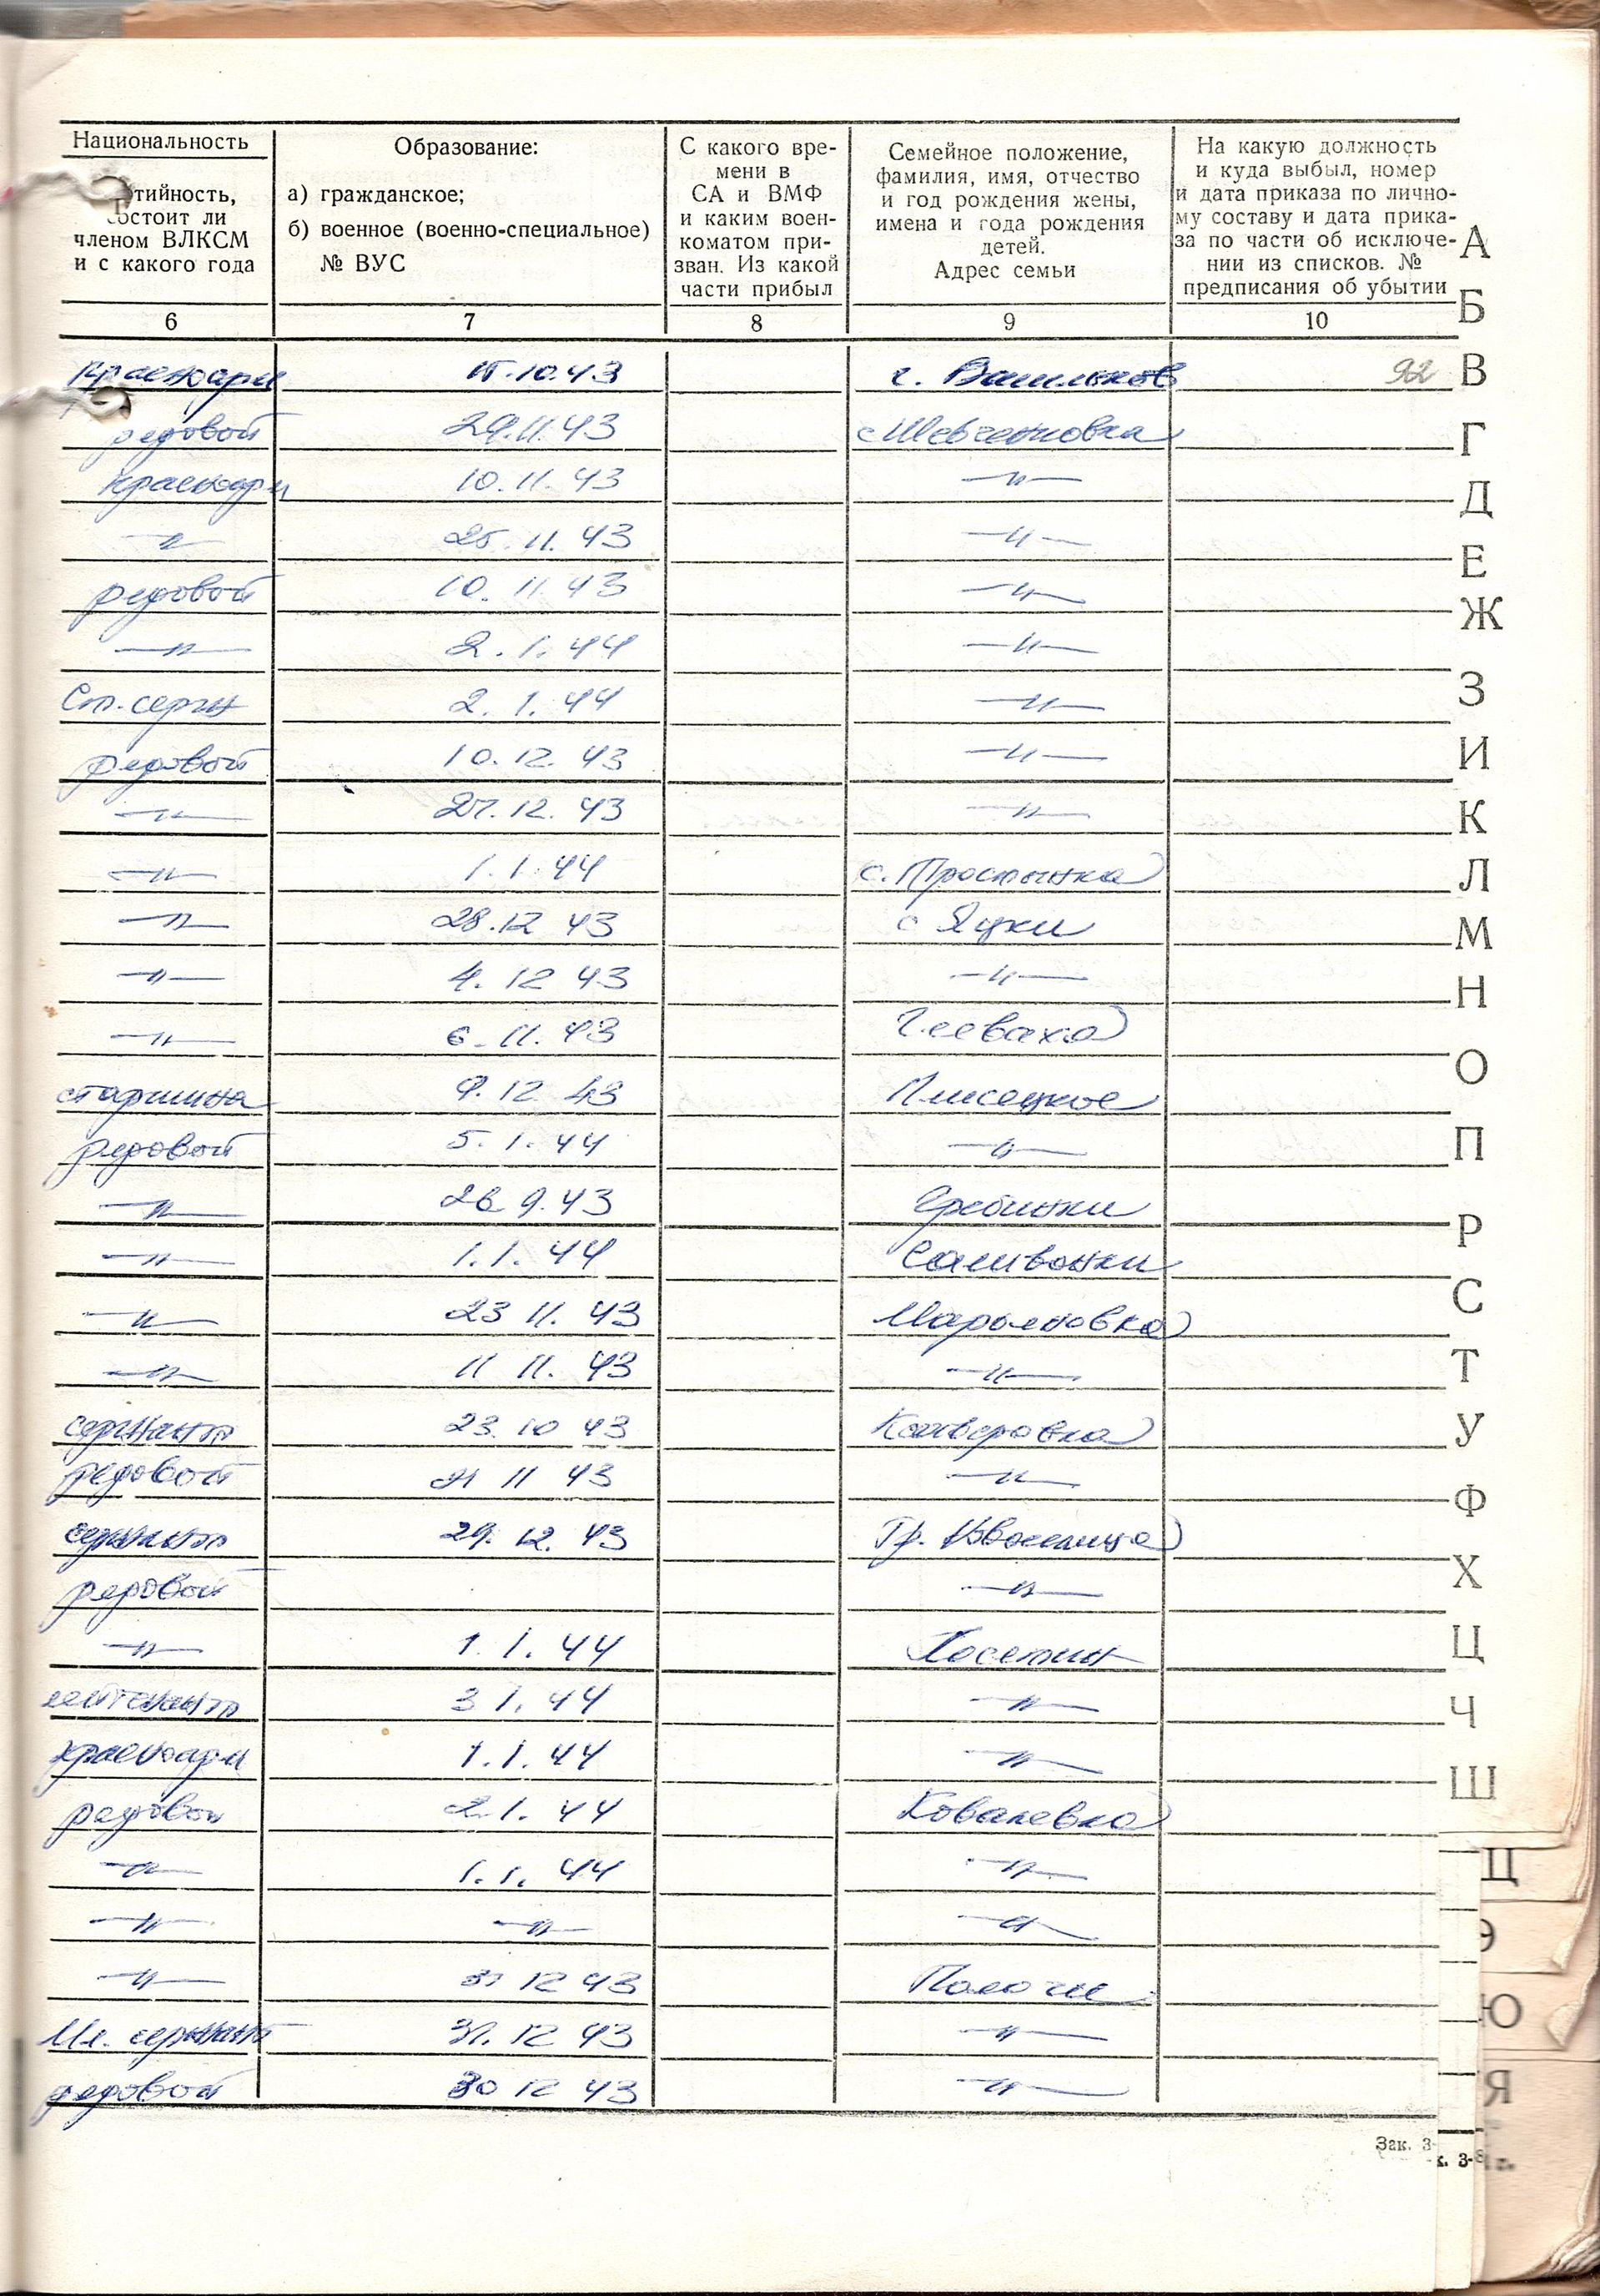 Национальность
тийность,
состоит ли
членом ВЛКСМ
и с какого года
Образование:
а) гражданское;
б) военное (военно-специальное)
№ ВУС
С какого вре-
мени в
СА и ВМФ
и каким воен-
коматом при-
зван. Из какой
части прибыл
Семейное положение,
фамилия, имя, отчество
и год рождения жены,
имена и года рождения
детей.
Адрес семьи
На какую должность
и куда выбыл, номер
и дата приказа по лично-
му составу и дата прика-
за по части об исключе-
нии из списков. №
предписания об убытии
6 7 8 9 10
Красноарм 15.10.43 г. Васильков 92
редовой 29.11.43 с Шевченковка
Красноарм 10.11.43 —"—
—"— 25.11.43 —"—
редовой 10.11.43 —"—
—"— 2.1.44 —"—
Ст.серж 2.1.44 —"—
редовой 10.12.43 —"—
—"— 27.12.43 —"—
—"— 1.1.44 с.
—"— 28.12 43 с Яцки
—"— 4.12 43 —"—
—"— 6.11.43 Глеваха
старшина 9.12 43 Плисецкое
редовой 5.1.44 —"—
—"— 26 9.43 Гребинки
—"— 1.1.44 Саливонки
—"— 23 11.43 Марьяновка
—"— 11 11.43 —"—
сержантр 23.10 43 Ксаверовка
редовой 21 11 43 —"—
сержантр 29.12.43 Гр.
редовой —"—
—"— 1.1.44
лейтенантр 3 1.44 —"—
красноарм 1.1.44 —"—
редовой 2.1.44 Ковалевка
—"— 1.1.44 —"—
—"— —"— —"—
—"— 31 12 43 Пологи
Мл. сержант 31.12 43 —"—
редовой 30 12 43 —"—
А
Б
В
Г
Д
Е
Ж
З
И
К
Л
М
Н
О
П
Р
С
Т
У
Ф
Х
Ц
Ч
Ш
Щ
Э
Ю
Я
Зак. 3-
к. 3-8